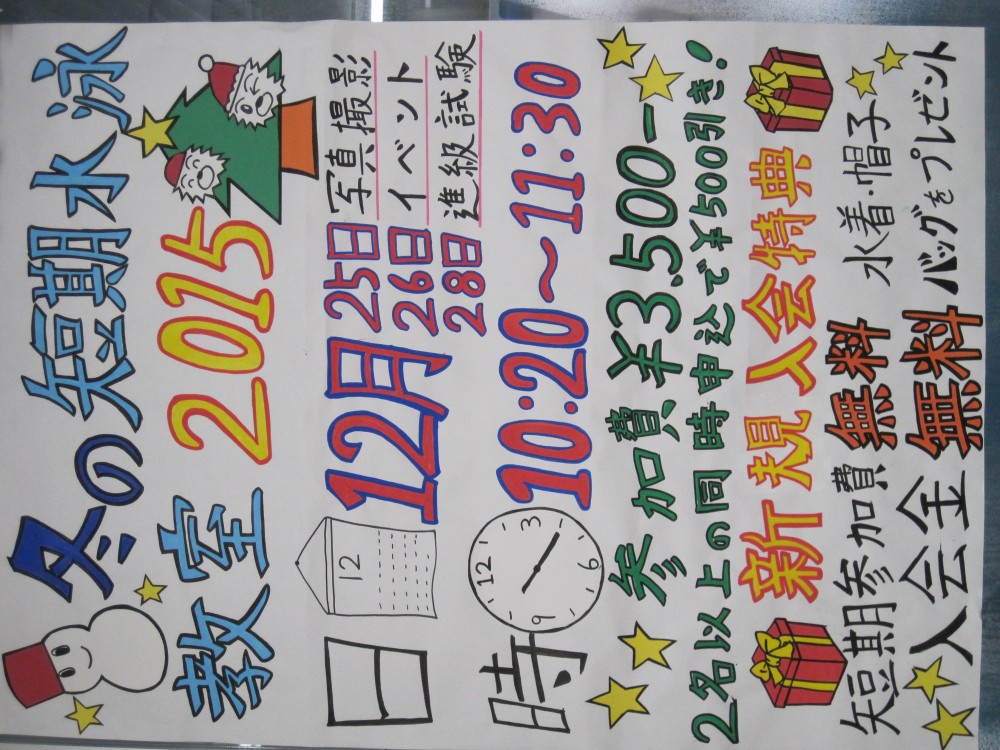 冬の短期水泳
教室 2015
12
12月 25日 写真撮影
26日 イベント
28日 進級試験
日
時
12
3
6
9
10:20～11:30
参加費 ¥3,500ー
2名以上の同時申込で¥500引き!
新規入会特典
短期参加費 無料 水着・帽子
入会金 無料 バッグをプレゼント